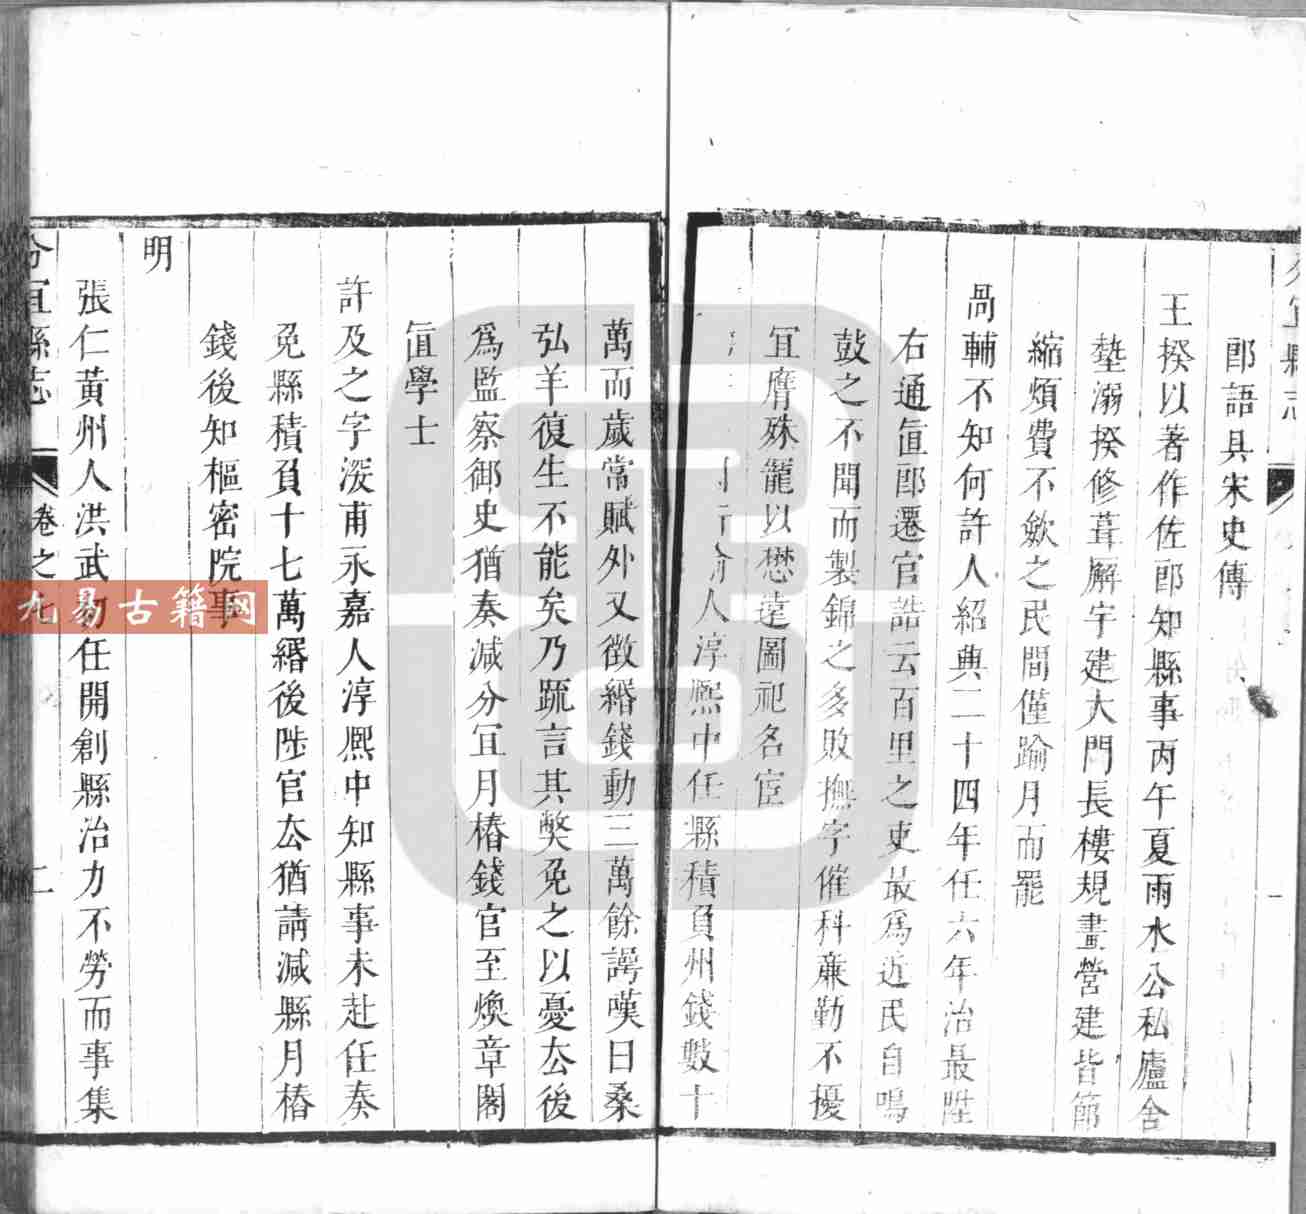 郎語具宋史傳
王揆以著作佐郎知縣事丙午夏雨水公私廬舍
墊溺揆修葺廨宇建大門長樓規畫營建皆節
縮煩費不歛之民間僅踰月而罷
咼輔不知何許人紹興二十四年任六年治最陞
右通直郎遷官誥云百里之吏最爲近民自鳴
鼓之不聞而製錦之多敗撫字催科蕭勤不擾
宜膺殊寵以懋遠圖祀名宦
人淳熙中任縣積負州錢數十
萬而歲常賦外又徵緡錢動三萬餘謣嘆曰桑
弘羊復生不能矣乃疏言其獘免之以憂去後
爲監察御史猶奏減分宜月樁錢官至煥章閣
直學士
許及之字深甫永嘉人淳熙中知縣事未赴任奏
免縣積負十七萬緡後陟官去猶請減縣月樁
錢後知樞密院事
明
張仁黃州人洪武初任開創縣治力不勞而事集
分宜縣志
卷之七
二
九易古籍网